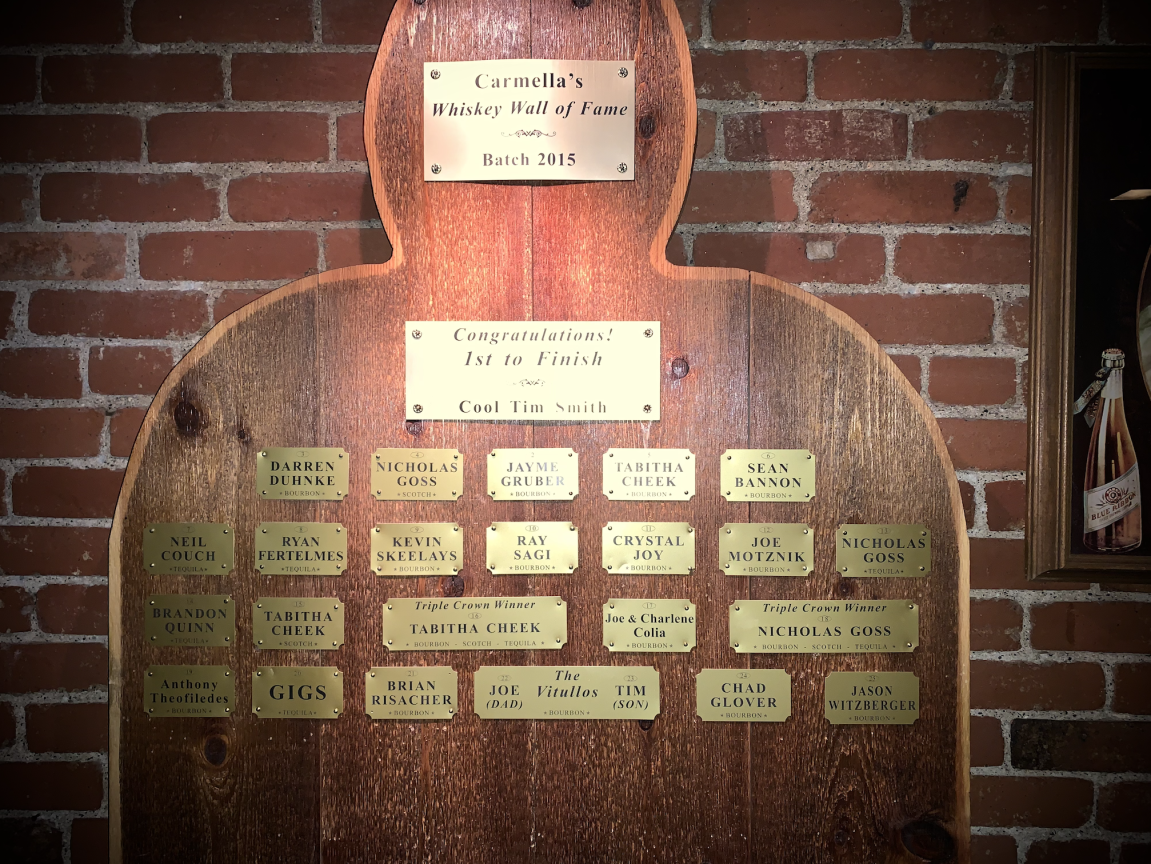 Carmella's
Whiskey Wall of Fame
Batch 2015
Congratulations!
1st to Finish
Cool Tim Smith
3
DARREN
DUHNKE
• BOURBON •
4
NICHOLAS
GOSS
• SCOTCH •
2
JAYME
GRUBER
• BOURBON •
5
TABITHA
CHEEK
• BOURBON •
6
SEAN
BANNON
• BOURBON •
7
NEIL
COUCH
• TEQUILA •
8
RYAN
FERTELMES
• TEQUILA •
9
KEVIN
SKEELAYS
• BOURBON •
10
RAY
SAGI
• BOURBON •
11
CRYSTAL
JOY
• BOURBON •
12
JOE
MOTZNIK
• BOURBON •
13
NICHOLAS
GOSS
• TEQUILA •
14
BRANDON
QUINN
• TEQUILA •
15
TABITHA
CHEEK
• SCOTCH •
Triple Crown Winner
16
TABITHA CHEEK
• BOURBON - SCOTCH - TEQUILA •
17
Joe & Charlene
Colia
• BOURBON •
Triple Crown Winner
18
NICHOLAS GOSS
• BOURBON - SCOTCH - TEQUILA •
19
Anthony
Theofiledes
• BOURBON •
20
GIGS
• TEQUILA •
21
BRIAN
RISACHER
• BOURBON •
22 The 23
JOE Vitullos TIM
(DAD) (SON)
• BOURBON •
24
CHAD
GLOVER
• BOURBON •
25
JASON
WITZBERGER
• BOURBON •
BLUE RIBBON